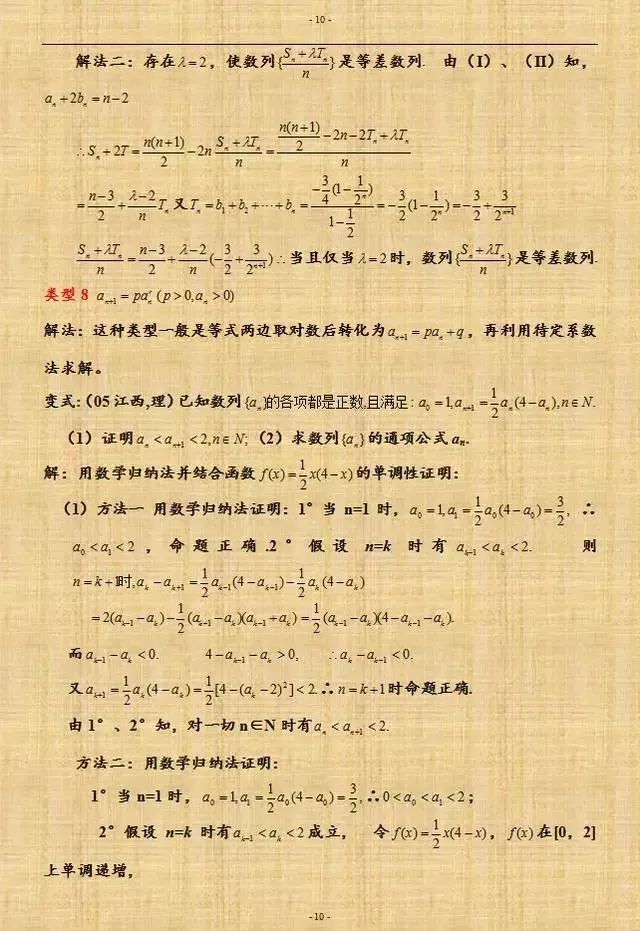 - 10 -
解法二：存在λ=2，使数列{\frac{S_n+λT_n}{n}}是等差数列. 由（I）、（II）知，
a_n+2b_n=n-2
∴S_n+2T=\frac{n(n+1)}{2}-2n \frac{S_n+λT_n}{n}=\frac{\frac{n(n+1)}{2}-2n-2T_n+λT_n}{n}
=\frac{n-3}{2}+\frac{λ-2}{n}T_n 又T_n=b_1+b_2+···+b_n=\frac{-\frac{3}{4}(1-\frac{1}{2^n})}{1-\frac{1}{2}}=-\frac{3}{2}(1-\frac{1}{2^n})=-\frac{3}{2}+\frac{3}{2^{n+1}}
\frac{S_n+λT_n}{n}=\frac{n-3}{2}+\frac{λ-2}{n}(-\frac{3}{2}+\frac{3}{2^{n+1}})∴当且仅当λ=2时，数列{\frac{S_n+λT_n}{n}}是等差数列.
类型8 a_{n+1}=pa_n^r(p>0,a_n>0)
解法：这种类型一般是等式两边取对数后转化为a_{n+1}=pa_n+q，再利用待定系数
法求解。
变式：（05江西,理）已知数列{a_n}的各项都是正数,且满足：a_0=1,a_{n+1}=\frac{1}{2}a_n(4-a_n),n∈N.
（1）证明a_n<a_{n+1}<2,n∈N;（2）求数列{a_n}的通项公式a_n.
解：用数学归纳法并结合函数f(x)=\frac{1}{2}x(4-x)的单调性证明：
（1）方法一 用数学归纳法证明：1°当n=1时，a_0=1,a_1=\frac{1}{2}a_0(4-a_0)=\frac{3}{2}, ∴
a_0<a_1<2，命题正确.2°假设n=k时有a_{k-1}<a_k<2. 则
n=k+1时,a_k-a_{k+1}=\frac{1}{2}a_{k-1}(4-a_{k-1})-\frac{1}{2}a_k(4-a_k)
=2(a_{k-1}-a_k)-\frac{1}{2}(a_{k-1}-a_k)(a_{k-1}+a_k)=\frac{1}{2}(a_{k-1}-a_k)(4-a_{k-1}-a_k).
而a_{k-1}-a_k<0. 4-a_{k-1}-a_k>0, ∴a_k-a_{k-1}<0.
又a_{k+1}=\frac{1}{2}a_k(4-a_k)=\frac{1}{2}[4-(a_k-2)^2]<2.∴n=k+1时命题正确.
由1°、2°知，对一切n∈N时有a_n<a_{n+1}<2.
方法二：用数学归纳法证明：
1°当n=1时，a_0=1,a_1=\frac{1}{2}a_0(4-a_0)=\frac{3}{2},∴0<a_0<a_1<2；
2°假设n=k时有a_{k-1}<a_k<2成立， 令f(x)=\frac{1}{2}x(4-x)，f(x)在[0，2]
上单调递增，
- 10 -